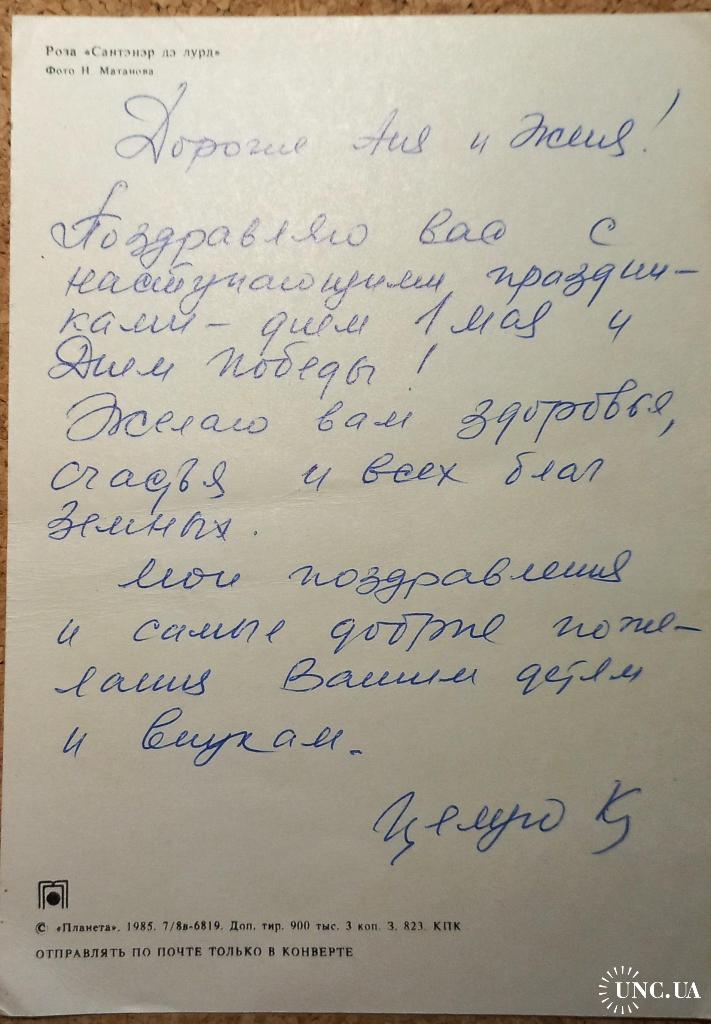 Роза «Сантэнэр дэ лурд»
Фото Н. Матанова
Дорогие Аня и Женя!
Поздравляю вас с
наступающими праздни-
ками - днем 1 мая и
Днем Победы!
Желаю вам здоровья,
счастья и всех благ
земных.
Мои поздравления
и самые добрые поже-
лания Вашим детям
и внукам.
Целую К
© «Планета». 1985. 7/8в-6819. Доп. тир. 900 тыс. 3 коп. З. 823. КПК
ОТПРАВЛЯТЬ ПО ПОЧТЕ ТОЛЬКО В КОНВЕРТЕ
UNC.UA